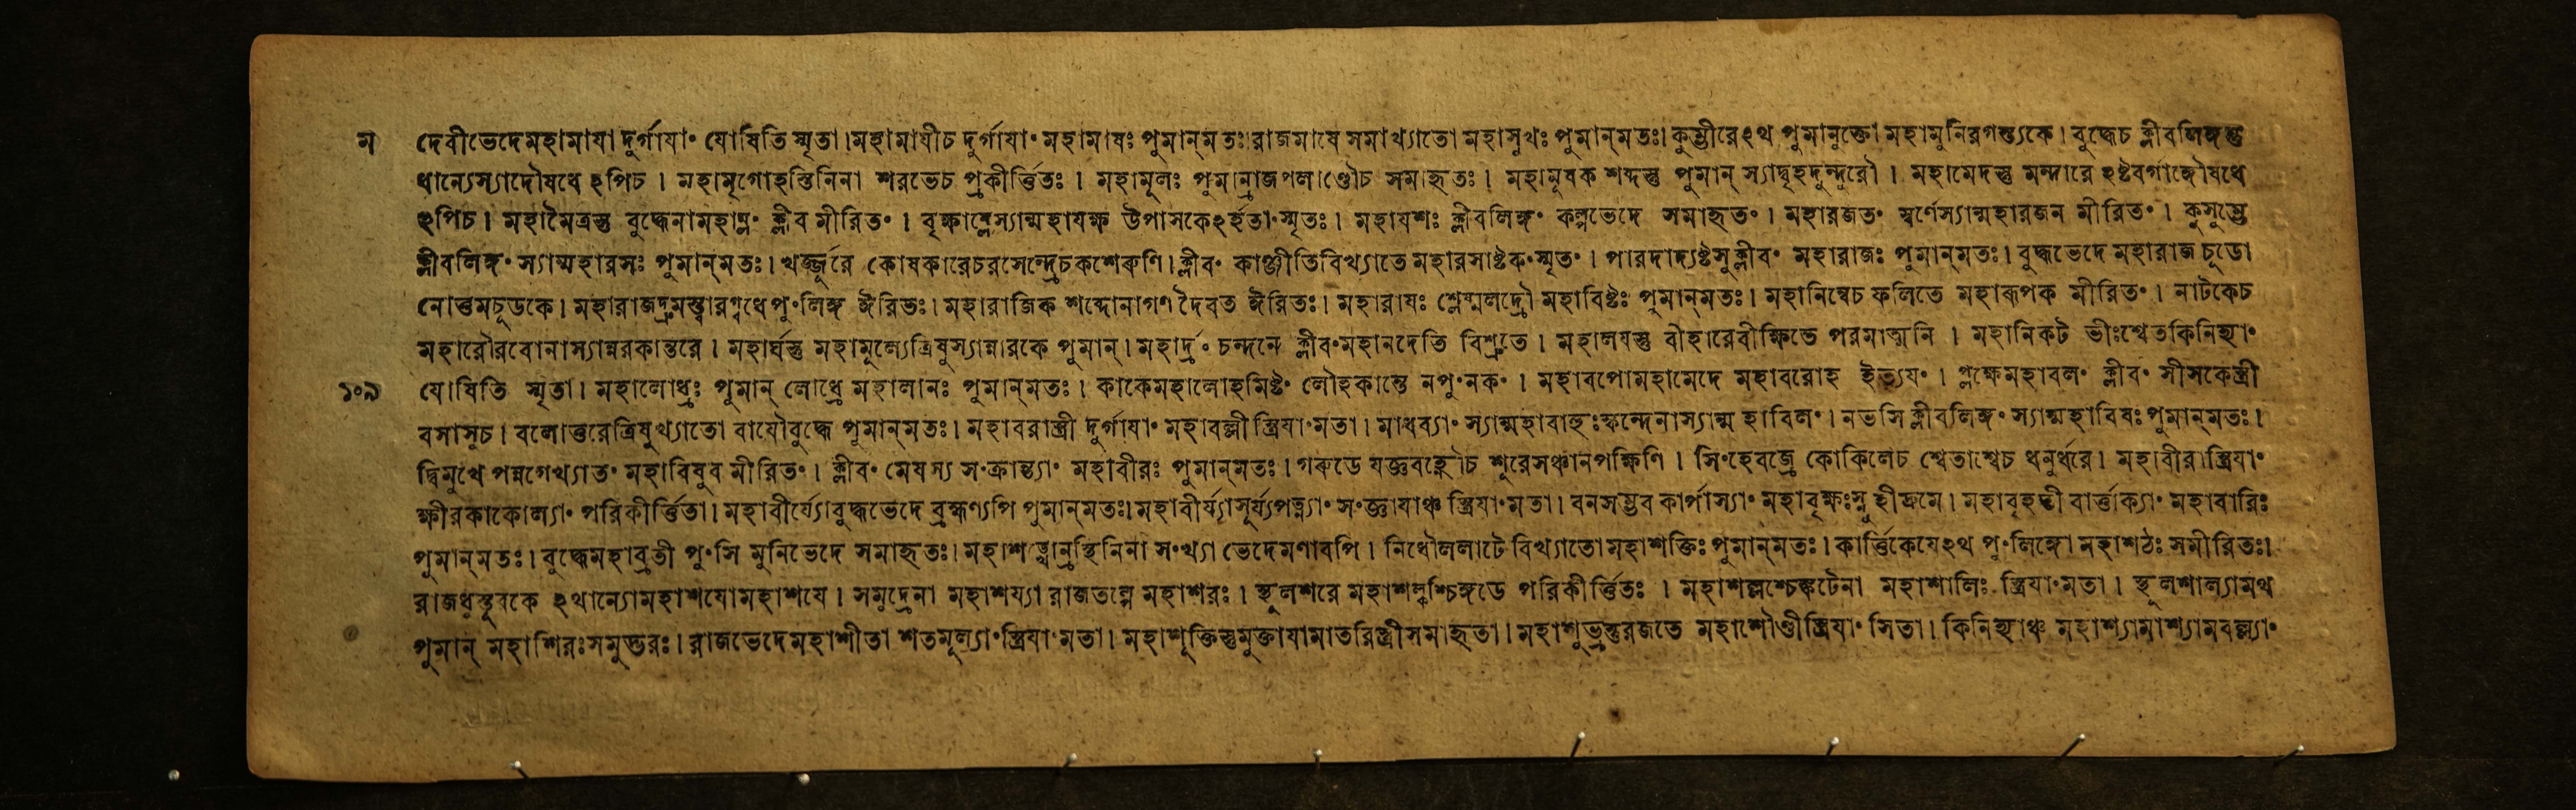 ম দেবীভেদেমহামায়া দুর্গায়াং যোষিতি স্মৃতা।মহামাষীচ দুর্গায়াং মহামাষঃ পুমান্‌মতঃ।রাজমাষে সমাখ্যাতো মহাসুখঃ পুমান্‌মতঃ। কুম্ভীরেঽথ পুমানুক্তো মহামুনিরগস্ত্যকে। বুদ্ধেচ ক্লীবলিঙ্গন্তু
ধান্যেস্যাদৌষধে ঽপিচ । মহামৃগোহস্তিনিনা শরভেচ প্রকীর্ত্তিতঃ । মহামূলঃ পুমান্রাজপলাণ্ডৌচ সমাহৃতঃ। মহামূষক শব্দস্তু পুমান্ স্যাদ্বৃহদুন্দুরৌ । মহামেদস্তু মন্দারে ঽষ্টবর্গাঙ্গৌষধে
ঽপিচ। মহামৈত্রস্তু বুদ্ধেনামহাম্লং ক্লীব মীরিতং । বৃক্ষাম্লেস্যান্মহাযক্ষ উপাসকেঽর্হতাং স্মৃতঃ। মহাযশঃ ক্লীবলিঙ্গং কল্পভেদে সমাহৃতং । মহারজতং স্বর্ণেস্যান্মহারজন মীরিতং । কুসুম্ভে
ক্লীবলিঙ্গং স্যান্মহারসঃ পুমান্‌মতঃ। খর্জ্জূরে কোষকারেচরসেন্দ্রেচকশেরুণি। ক্লীবং কাঞ্জীতিবিখ্যাতে মহারসাষ্টকং স্মৃতং । পারদাদ্যষ্টসুক্লীবং মহারাজঃ পুমান্‌মতঃ। বুদ্ধভেদে মহারাজ চূডো
নোত্তমচূডকে। মহারাজদ্রুমস্ত্বারগ্বধে পুংলিঙ্গ ঈরিতঃ। মহারাজিক শব্দোনাগণ দৈবত ঈরিতঃ। মহারাষঃ শ্লেষ্মলদ্রৌ মহাবিষ্টঃ পুমান্‌মতঃ। মহানিম্বেচ ফলিতে মহারূপক মীরিতং । নাটকেচ
মহারৌরবোনাস্যান্নরকান্তরে । মহার্ঘস্তু মহামূল্যেত্রিষুস্যান্নারকে পুমান্। মহার্দ্রং চন্দনে ক্লীবং মহানদেতি বিশ্রুতে । মহালয়স্তু বীহারেবীক্ষিতে পরমাত্মনি । মহানিকট ভীঃশ্বেতকিনিহ্যাং
১০৯ যোষিতি স্মৃতা। মহালোধ্রঃ পুমান্ লোধ্রে মহালানঃ পুমান্‌মতঃ। কাকেমহালোহমিষ্টং লৌহকান্তে নপুংনকং । মহাবপোমহামেদে মহাবরোহ ইত্যয়ং । প্লক্ষেমহাবলং ক্লীবং সীসকেস্ত্রী
বসাসুচ। বলোত্তরেত্রিষুখ্যাতো বায়ৌবুদ্ধে পুমান্‌মতঃ। মহাবরাস্ত্রী দুর্গায়াং মহাবল্লী স্ত্রিয়াং মতা। মাধব্যাং স্যান্মহাবাহুঃস্কন্দেনাস্যান্ম হাবিলং । নভসি ক্লীবলিঙ্গং স্যান্মহাবিষঃ পুমান্‌মতঃ।
দ্বিমুখে পন্নগেখ্যাতং মহাবিষুব মীরিতং । ক্লীবং মেষস্য সংক্রান্ত্যাং মহাবীরঃ পুমান্‌মতঃ। গরুডে যজ্ঞবহ্নৌচ শূরেসঞ্চানপক্ষিণি । সিংহেবজ্রে কোকিলেচ শ্বেতাশ্বেচ ধনুর্ধরে। মহাবীরা স্ত্রিয়াং
ক্ষীরকাকোল্যাং পরিকীর্ত্তিতা। মহাবীর্য্যোবুদ্ধভেদে ব্রহ্মণ্যপি পুমান্‌মতঃ। মহাবীর্য্যাসূর্য্যপত্ন্যাং সংজ্ঞায়াঞ্চ স্ত্রিয়াং মতা। বনসম্ভব কার্পাস্যাং মহাবৃক্ষঃস্নুহীদ্রুমে। মহাবৃহতী বার্ত্তাক্যাং মহাবারিঃ
পুমান্‌মতঃ। বুদ্ধেমহাব্রতী পুংসি মুনিভেদে সমাহৃতঃ। মহাশঙ্খোনুস্থিনিনা সংখ্যা ভেদেমণাবপি । নিধৌললাটে বিখ্যাতোমহাশক্তিঃ পুমান্‌মতঃ। কার্ত্তিকেয়েঽথ পুংলিঙ্গো মহাশঠঃ সমীরিতঃ।
রাজধুস্তূরকে ঽথান্যোমহাশয়োমহাশয়ে । সমুদ্রেনা মহাশয্যা রাজতল্পে মহাশরঃ। স্থূলশরে মহাশল্কশ্চিঙ্গডে পরিকীর্ত্তিতঃ । মহাশল্লশ্চেঙ্কটেনা মহাশালিঃ স্ত্রিয়াং মতা। স্থূলশাল্যামথ
পুমান্ মহাশিরঃসমুদ্ভরঃ। রাজভেদেমহাশীতা শতমূল্যাং স্ত্রিয়াং মতা। মহাশূক্তিস্তুমুক্তায়ামাতরিস্ত্রীসমাহৃতা। মহাশুভ্রন্তুরজতে মহাশৌণ্ডীস্ত্রিয়াং সিতা। কিনিহ্যাঞ্চ মহাশ্যামাশ্যামবল্ল্যাং